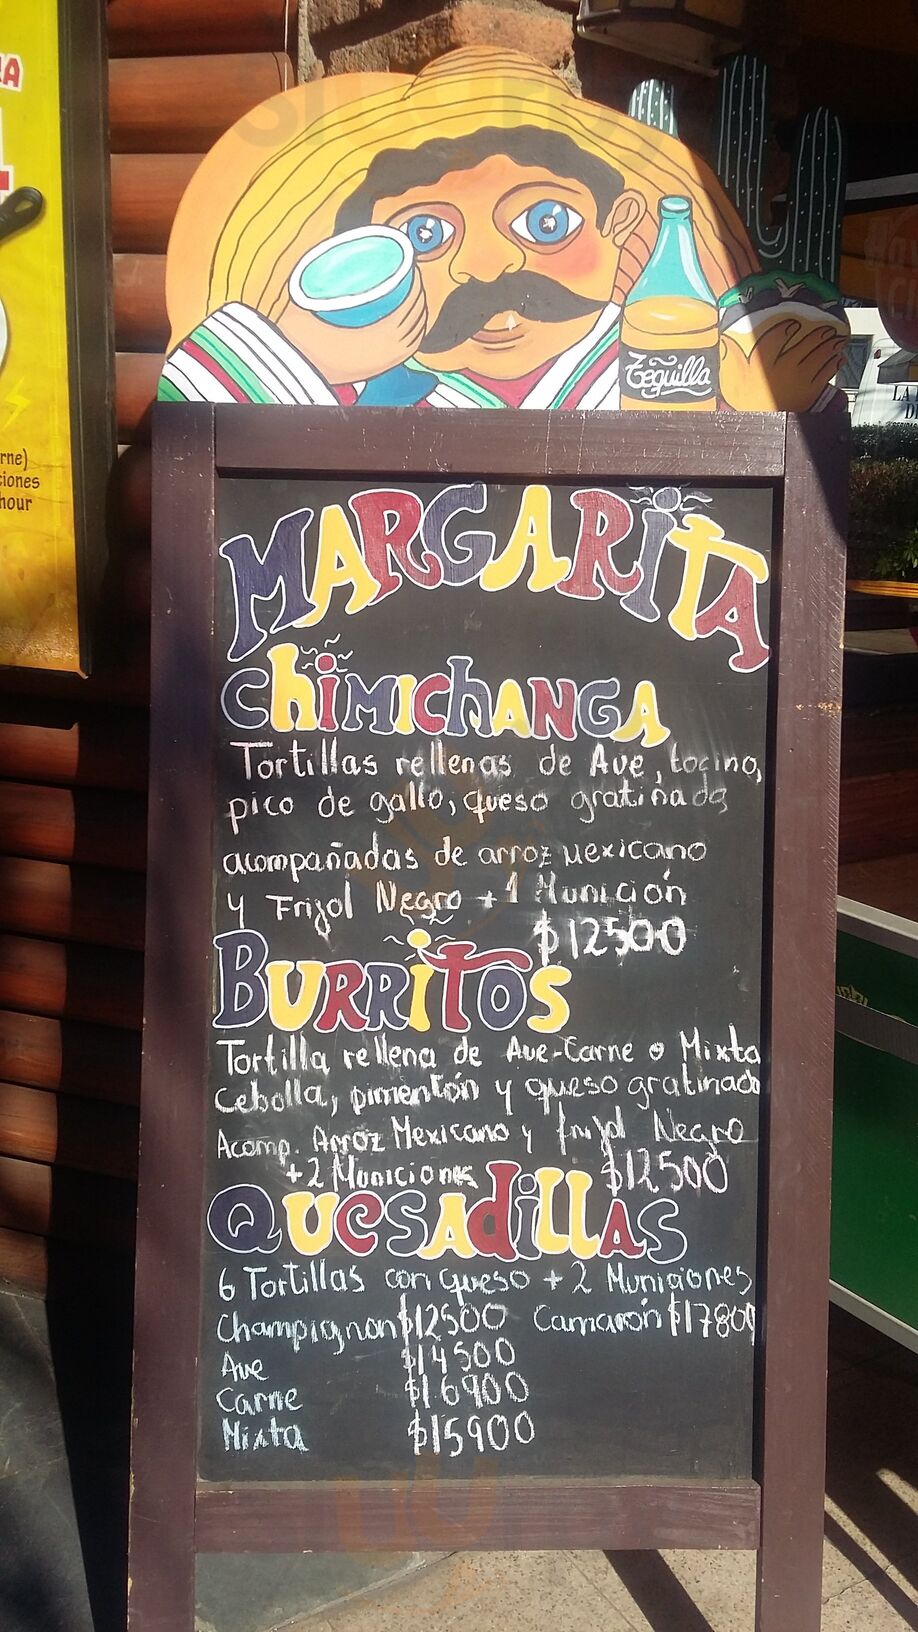 Tequilla
MARGARITA
CHIMICHANGA
Tortillas rellenas de Ave, tocino,
pico de gallo, queso gratinado
acompañadas de arroz mexicano
y Frijol Negro + 1 Munición
$12500
BURRITOS
Tortilla rellena de Ave-Carne o Mixta
Cebolla, pimentón y queso gratinado
Acomp. Arroz Mexicano y frijol Negro
+2 Municiones $12500
QUESADILLAS
6 Tortillas con queso + 2 Municiones
Champignon $12500 Camarón $17800
Ave $14500
Carne $16900
Mixta $15900
rne)
ciones
hour